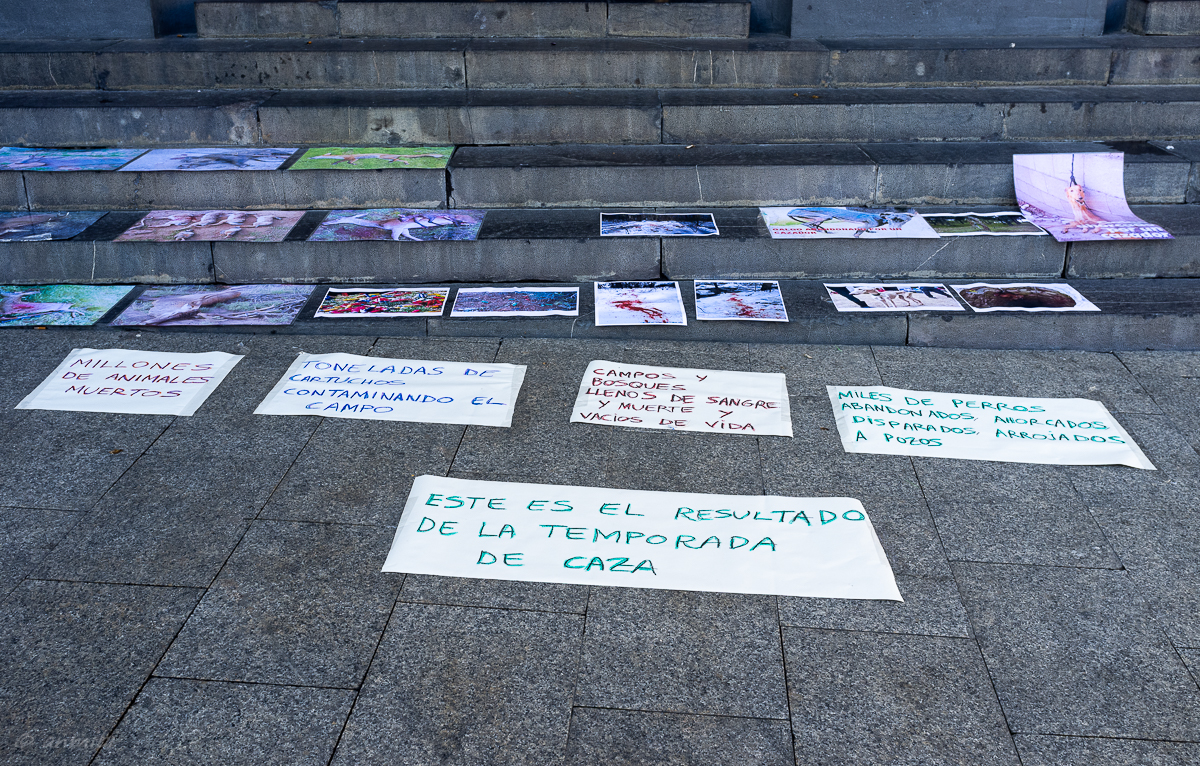 GALGO ABANDONADO POR UN
CAZADOR
MILLONES
DE ANIMALES
MUERTOS
TONELADAS DE
CARTUCHOS
CONTAMINANDO EL
CAMPO
CAMPOS Y
BOSQUES
LLENOS DE SANGRE
Y MUERTE Y
VACIOS DE VIDA
MILES DE PERROS
ABANDONADOS, AHORCADOS,
DISPARADOS, ARROJADOS
A POZOS
ESTE ES EL RESULTADO
DE LA TEMPORADA
DE CAZA